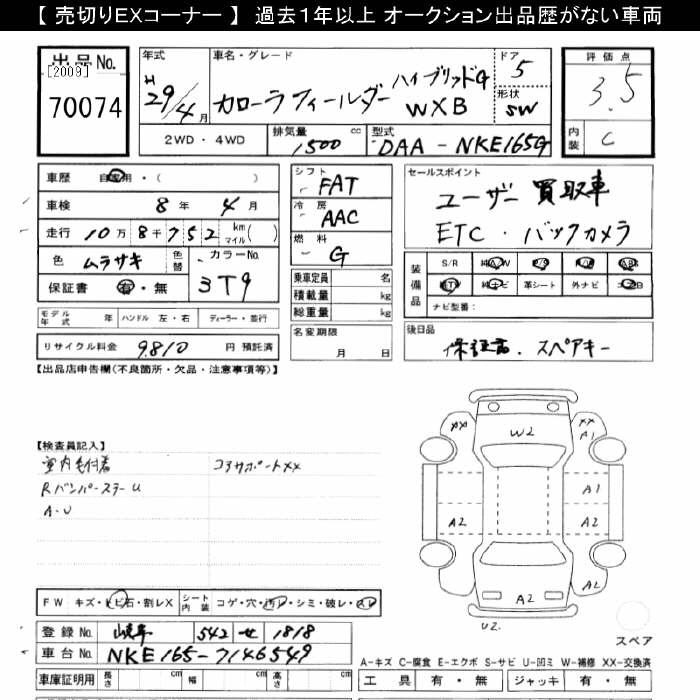 【 売切りEXコーナー 】 過去1年以上 オークション出品歴がない車両
出品No.
[2009]
70074
年式
H 29/4 月
車名・グレード
カローラフィールダー ハイブリッドG
WXB
ドア 5
形状 SW
評価点
3.5
内装 C
2WD ・ 4WD
排気量 1500 cc
型式 DAA - NKE165G
車歴 自家用・( )
車検 8 年 4 月
走行 10万8千752 km マイル ( )
色 ムラサキ 色替
カラーNo. 3T9
保証書 有・無
シフト FAT
冷房 AAC
燃料 G
乗車定員 名
積載量 kg
総重量 kg
名変期限
月 日
セールスポイント
ユーザー買取車
ETC・バックカメラ
装備品
S/R 純A/W P/S P/W ABS
純TV 純ナビ 革シート 外ナビ エアB
ナビ型番:
後日品
保証書、スペアキー
モデル年式 年 ハンドル 左・右 ディーラー・並行
リサイクル料金 9,810 円 預託済
【出品店申告欄(不良箇所・欠品・注意事項等)】
【検査員記入】
室内毛付着 コアサポートXX
RバンパーステーU
A・U
FW キズ・トビ石・割レX シート内装 コゲ・穴・汚レ・シミ・破レ・スレ
登録No. 岐阜 542 せ 1818
車台No. NKE165-7146549
車庫証明用 長さ cm 幅 cm 高さ cm
XX W2 XX
A1
A1
A2 A2
A2
A2
U2
スペア
A-キズ C-腐食 E-エクボ S-サビ U-凹ミ W-補修 XX-交換済
工具 有・無 ジャッキ 有・無